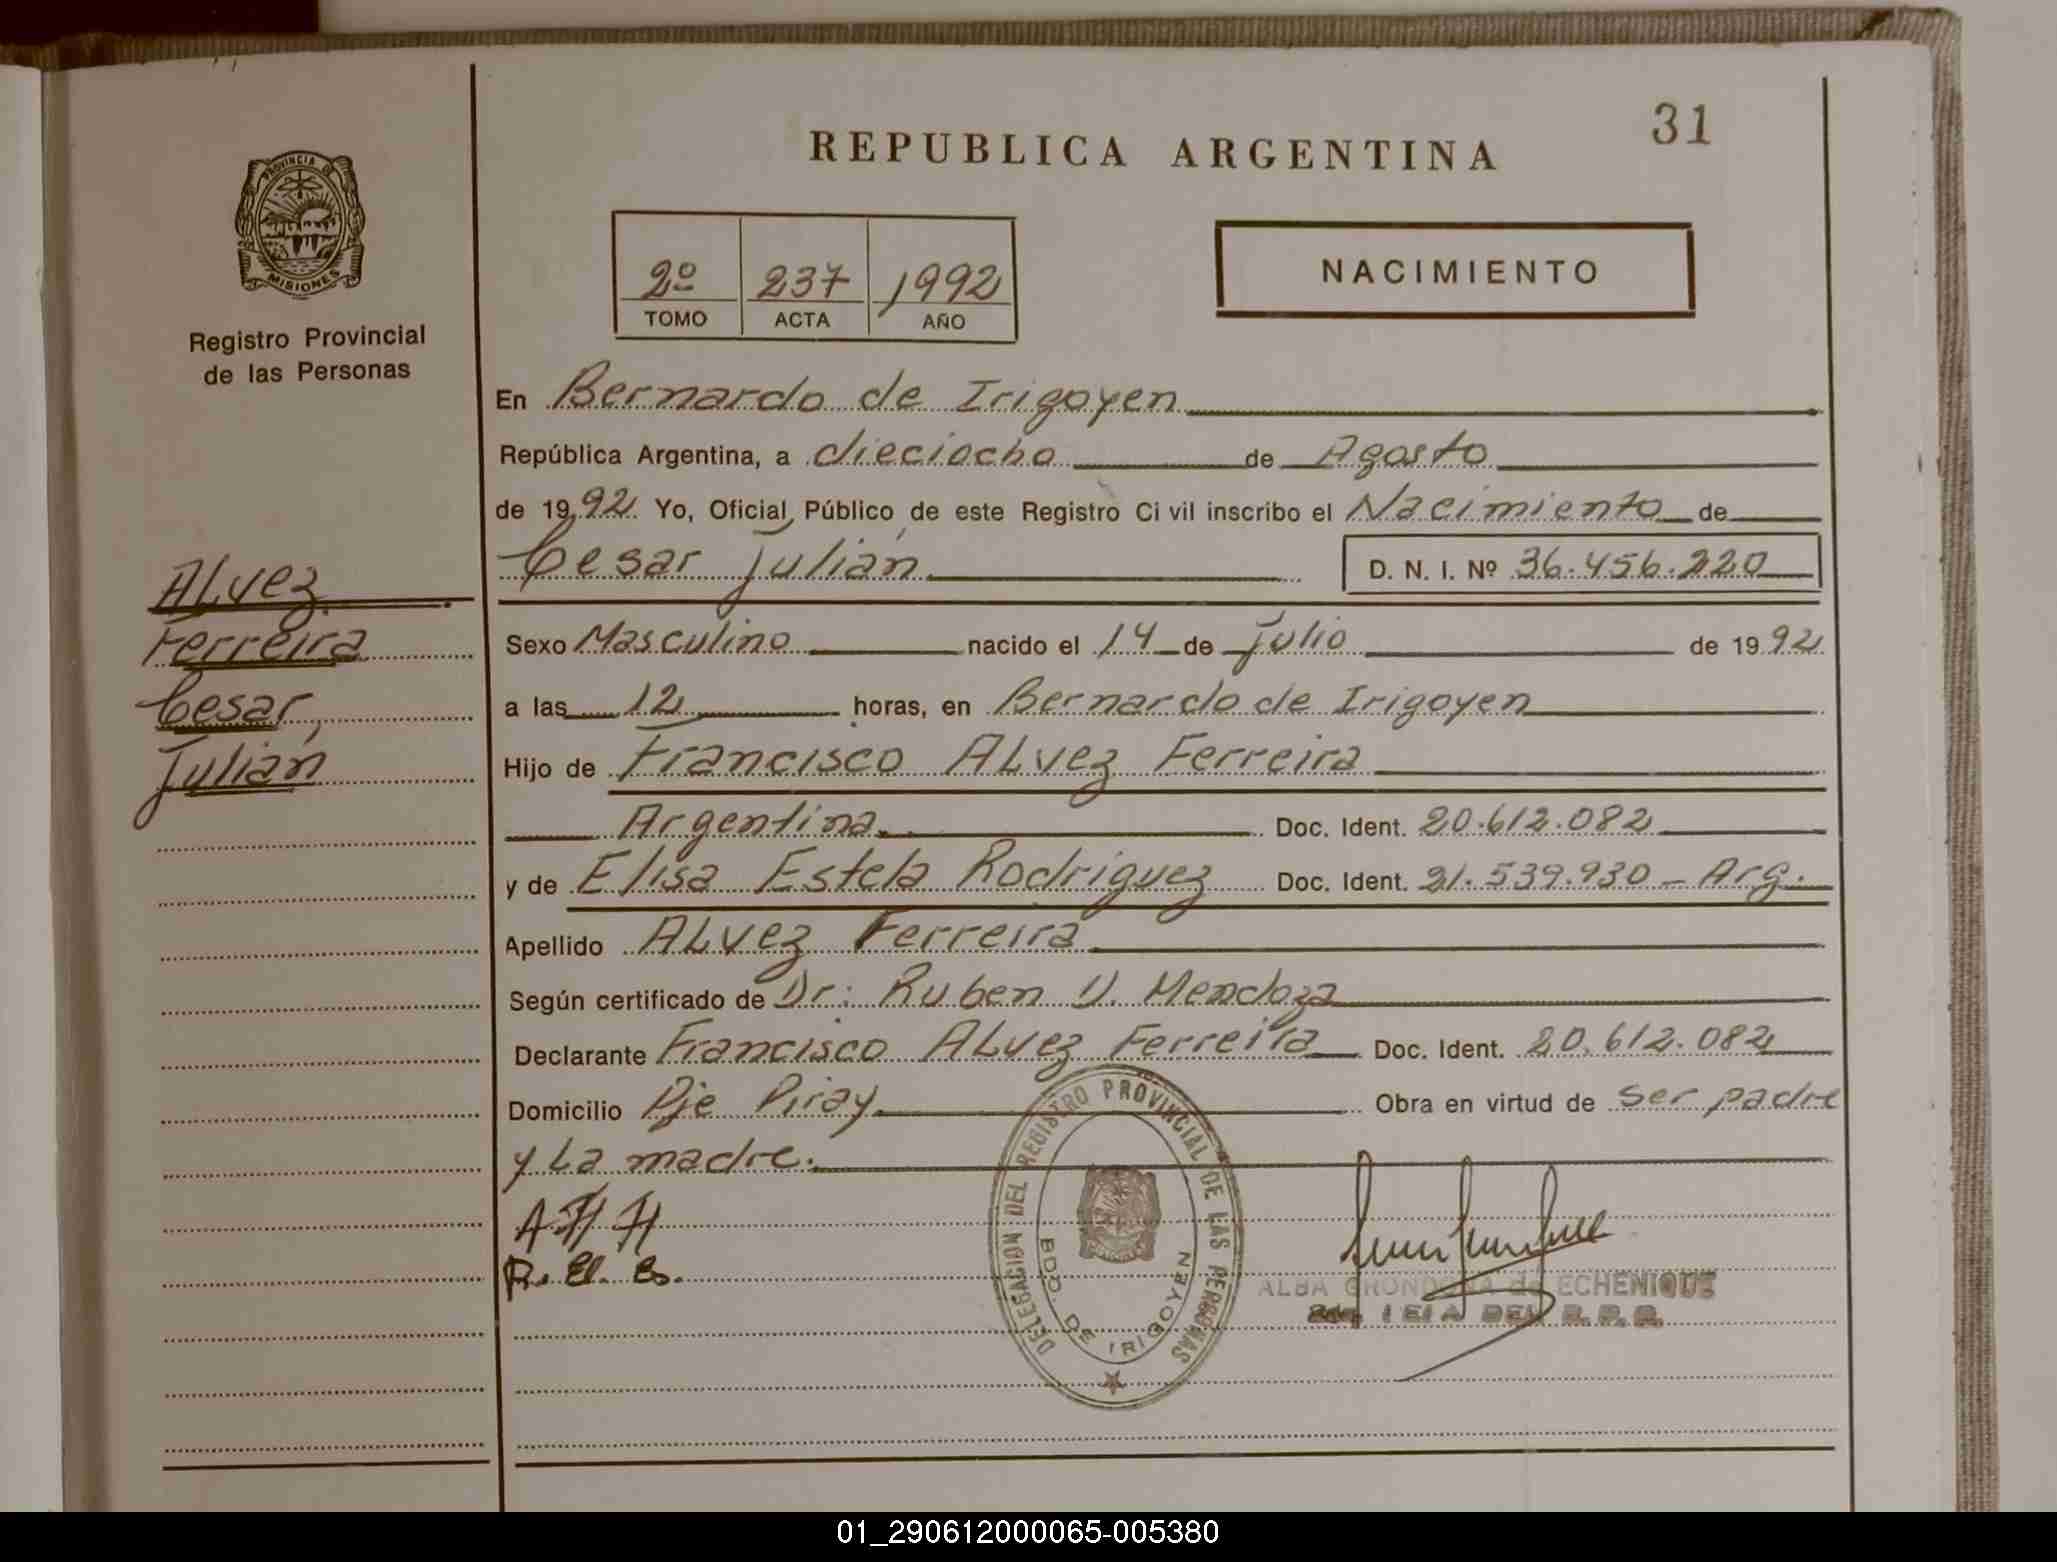 31
REPUBLICA ARGENTINA
PROVINCIA DE
MISIONES
Registro Provincial
de las Personas
2º 237 1992
TOMO ACTA AÑO
NACIMIENTO
Alvez
Ferreira
Cesar
Julián
En Bernardo de Irigoyen
República Argentina, a dieciocho de Agosto
de 1992 Yo, Oficial Público de este Registro Civil inscribo el Nacimiento de
Cesar Julián D. N. I. Nº 36.456.220
Sexo Masculino nacido el 14 de Julio de 1992
a las 12 horas, en Bernardo de Irigoyen
Hijo de Francisco Alvez Ferreira
Argentina Doc. Ident. 20.612.082
y de Elisa Estela Rodriguez Doc. Ident. 21.539.930 - Arg.
Apellido Alvez Ferreira
Según certificado de Dr: Ruben D. Mendoza
Declarante Francisco Alvez Ferreira Doc. Ident. 20.612.082
Domicilio Pje Piray Obra en virtud de ser padre
y La madre.
R. E. E.
DELEGACION DEL REGISTRO PROVINCIAL DE LAS PERSONAS
BDO. DE IRIGOYEN
ALBA de ECHENIQUE
DEL R. P. P.
01_290612000065-005380